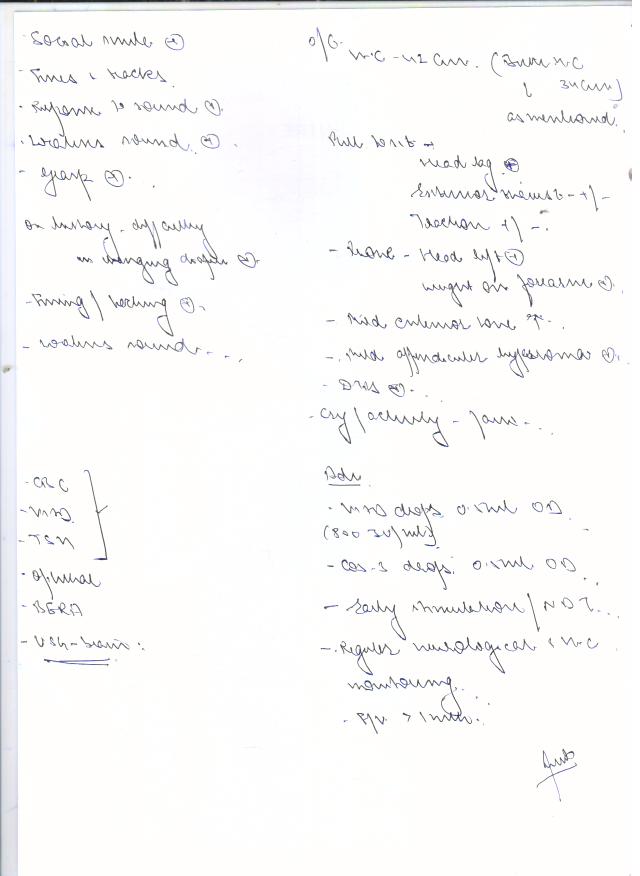 - Social smile ⊕
- Fixes & tracks.
- Response to sound ⊕.
- Localises sound. ⊕.
- grasp ⊕.
on history - difficulty
in changing diapers ⊕.
- Fixing / tracking ⊕.
- localises sound - ...
O/E
H.C - 42 cm. (Birth H.C
34 cm)
as mentioned.
Pull to sit →
Head lag ⊕
+/-
Traction +/-.
- Prone - Head lift ⊕
weight on forearm ⊕.
- Mild extensor tone ↑.
- Mild appendicular hypertonia ⊕.
- DTRS ⊕...
- Cry / activity -
- CBC
- Vit D.
- TSH
- BERA
- USG - brain :
Adv
- Vit D drops 0.5ml OD
(800 IU/ml)
drops 0.5ml OD
- Early stimulation / NDT...
- Regular neurological & H.C
monitoring.